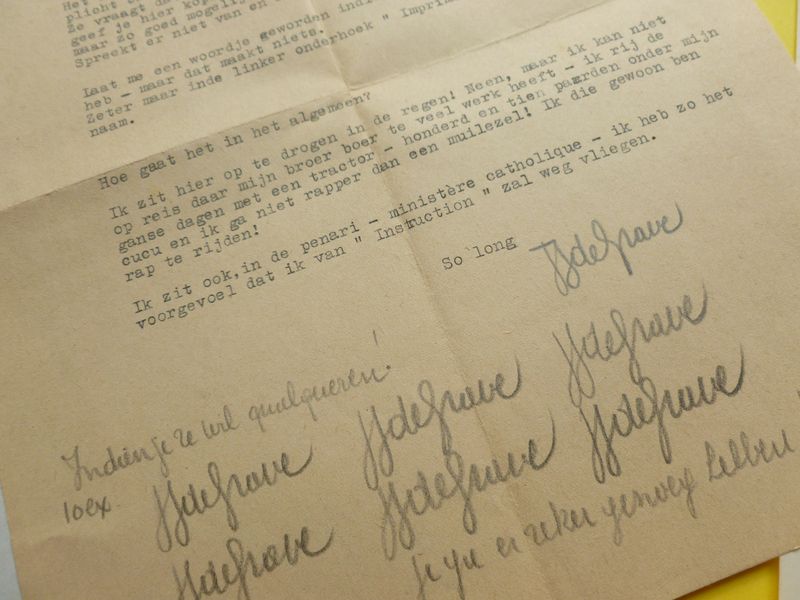 Het
plicht
Ze vraagt de
geef je hier
maar zo goed mogelij
Spreekt er niet van en
Laat me een woordje geworden indi
heb - maar dat maakt niets.
Zeter maar inde linker onderhoek " Imprim
naam.
Hoe gaat het in het algemeen?
Ik zit hier op te drogen in de regen! Neen, maar ik kan niet
op reis daar mijn broer boer te veel werk heeft - ik rij de
ganse dagen met een tractor - honderd en tien paarden onder mijn
cucu en ik ga niet rapper dan een muilezel! Ik die gewoon ben
rap te rijden!
Ik zit ook,in de penari - ministère catholique - ik heb zo het
voorgevoel dat ik van " Instruction " zal weg vliegen.
So long JJdeGrave
Indien je ze wil qualqueren! JJdeGrave JJdeGrave
10ex JJdeGrave JJdeGrave JJdeGrave
JJdeGrave je zu er zeker genoeg hebben